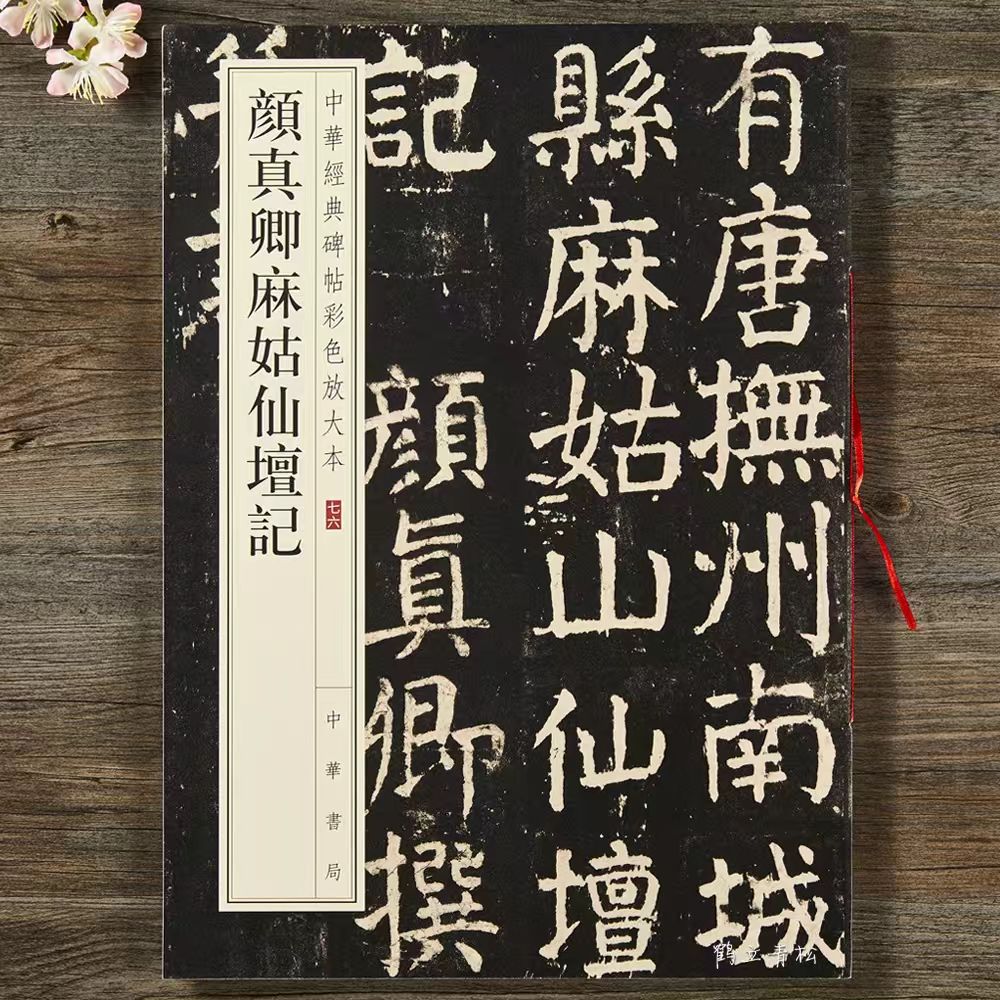 有唐撫州南城
縣麻姑山仙壇
記 顏真卿撰
中華經典碑帖彩色放大本 七六
中華書局
顏真卿麻姑仙壇記
鶴立青松